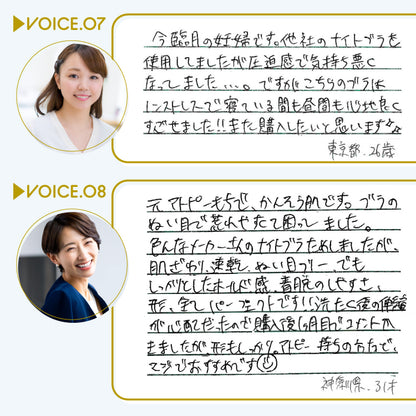 VOICE.07
今臨月の妊婦です。他社のナイトブラを
使用してましたが圧迫感で気持ち悪く
なってしました…。ですがこちらのブラは
ノンストレスで寝ている間も昼間も心地良く
すごせました!!また購入したいと思います
東京都、26歳
VOICE.08
元アトピーもちで、かんそう肌です。ブラの
ぬい目で荒れやたて困ってました。
色んなメーカーさんのナイトブラためしましたが、
肌ざわり、速乾、ぬい目フリー、でも
しっかりとしたホールド感、着脱のしやすさ、
形、全しパーフェクトです!!洗たく後の
が心配だったので購入後1ヶ月目でコメントか
きましたが、形もしっかり。アトピー持ちの方たで、
マジでおすすめです
神奈川県、31才